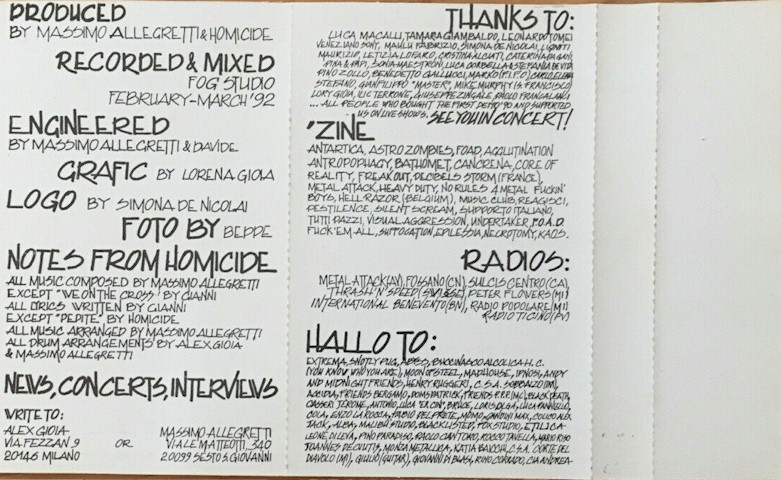 PRODUCED
BY MASSIMO ALLEGRETTI & HOMICIDE
RECORDED & MIXED
FOG STUDIO
FEBRUARY-MARCH '92
ENGINEERED
BY MASSIMO ALLEGRETTI & DAVIDE
GRAFIC BY LORENA GIOIA
LOGO BY SIMONA DE NICOLAI
FOTO BY BEPPE
NOTES FROM HOMICIDE
ALL MUSIC COMPOSED BY MASSIMO ALLEGRETTI
EXCEPT "WE ON THE CROSS" BY GIANNI
ALL LYRICS WRITTEN BY GIANNI
EXCEPT "PEPITE" BY HOMICIDE
ALL MUSIC ARRANGED BY MASSIMO ALLEGRETTI
ALL DRUM ARRANGEMENTS BY ALEX GIOIA
& MASSIMO ALLEGRETTI
NEWS, CONCERTS, INTERVIEWS
WRITE TO:
ALEX GIOIA
VIA FEZZAN 9
20146 MILANO
OR
MASSIMO ALLEGRETTI
VIALE MATTEOTTI, 340
20099 SESTO S. GIOVANNI
THANKS TO:
LUCA MACALLI, TAMARA GIAMBALDO, LEONARDO TOMEI
VENEZIANO SONY, FABRIZIO, SIMONA DE NICOLAI,
MAURIZIO, LETIZIA LODARO, CRISTINA ALCIATI, CATERINA
PINA & PAPI, SONIA MAESTRONI, LUCA CORBELLA & STEFANIA DE VITA
PINO ZOLLO, BENEDETTO GALLUCCI, MARKO (P.I.P.O.)
STEFANO, GIANFILIPPO "MASTER", MIKE MURPHY (S. FRANCISCO)
LORY GIOIA, ILIC TERRONE, GIUSEPPE ZINGALE, PAOLO
... ALL PEOPLE WHO BOUGHT THE FIRST DEMO '90 AND SUPPORTED
US ON LIVE SHOWS. SEE YOU IN CONCERT!
'ZINE
ANTARTICA, ASTRO ZOMBIES, FOAD, AGGLUTINATION
ANTROPOPHAGY, BATHOMET, CANCRENA, CORE OF
REALITY, FREAK OUT, DECIBELS STORM (FRANCE),
METAL ATTACK, HEAVY DUTY, NO RULES 4 METAL FUCKIN'
BOYS, HELL RAZOR (BELGIUM), MUSIC CLUB, REAGISCI,
PESTILENCE, SILENT SCREAM, SUPPORTO ITALIANO,
TUTTI PAZZI, VISUAL AGGRESSION, UNDERTAKER, F.O.A.D.
FUCK 'EM ALL, SUFFOCATION, EPILESSIA, NECROTOMY, KAOS.
RADIOS:
METAL ATTACK (AV), FOSSANO (CN), SULCIS CENTRO (CA)
THRASH 'N' SPEED, PETER FLOWERS (MI)
INTERNATIONAL BENEVENTO (BN), RADIO POPOLARE (MI)
RADIO TICINO (PV)
HALLO TO:
EXTREMA, SNOTLY PUG, BUCCINASCO ALCOLICA H.C.
(YOU KNOW WHO YOU ARE), MOON OF STEEL, MADHOUSE, IPNOS, ANDY
AND MIDNIGHT FRIENDS, HENRY RUGGERI, C.S.A.
ACCIDIA, FRIENDS BERGAMO, DOMS PATRICK, BLACK DEATH,
JEROME, ANTONIO, LUCA BRUCE, LORIS OLGA, LUCA PANNIELLO,
COLA, ENZO LA ROCCIA, FABIO DEL PRETE, MOMO, MAX,
JACK, ALBA, MALIBU STUDIO, BLACKLISTED, FOX STUDIO, ETILICA
LEONE DI LEVA, PINO PARADISO, PAOLO CANTORO, ROCCO TAVELLA,
MONZA METALLICA, KATIA BAICCHI, C.S.A. CORTE DEL
DIAVOLO (MI), GIULIO (GUITAR), GIOVANNI DI BIASI, ANDREA